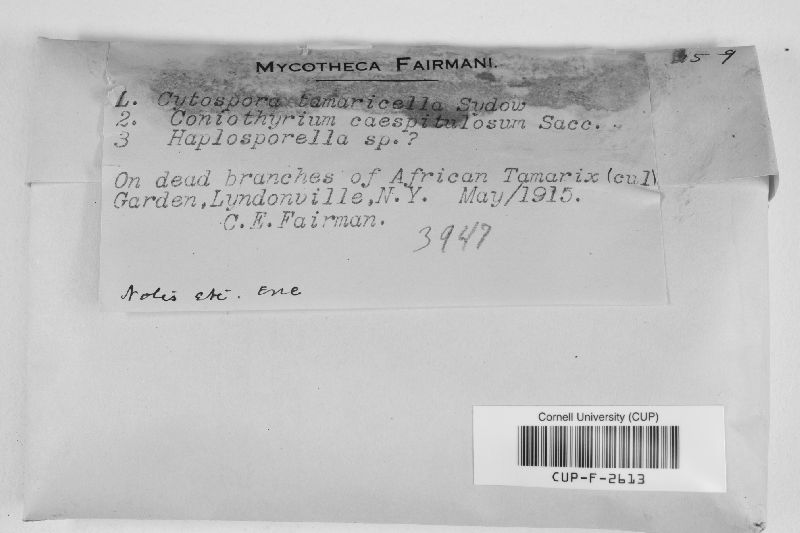 MYCOTHECA FAIRMANI.
5-9
1. Cytospora tamaricella Sydow
2. Coniothyrium caespitulosum Sacc.
3 Haplosporella sp.?
On dead branches of African Tamarix (cul)
Garden, Lyndonville, N.Y. May/1915.
C.E.Fairman.
3947
Notes etc. Enc
Cornell University (CUP)
CUP-F-2613